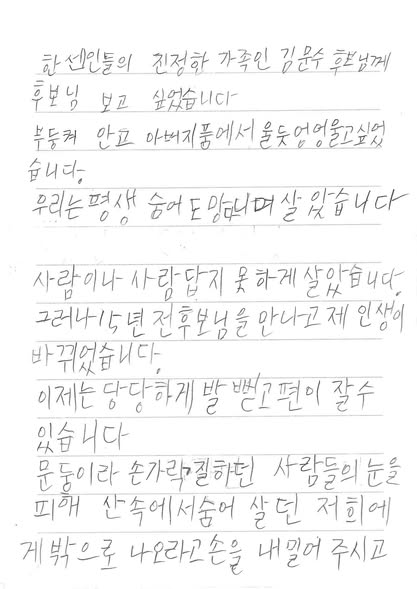 한센인들의 진정한 가족인 김문수 후보님께
후보님 보고 싶었습니다
부둥켜 안고 아버지품에서 울듯엉엉울고싶었
습니다.
우리는 평생 숨어 도망다니며 살았습니다
사람이나 사람답지 못하게 살았습니다.
그러나 15년 전후보님을 만나고제 인생이
바뀌었습니다.
이제는 당당하게 발 뻗고편이 잘수
있습니다
문둥이라 손가락질하던 사람들의 눈을
피해 산속에서숨어 살던 저희에
게 밖으로 나오라고손을 내밀어 주시고